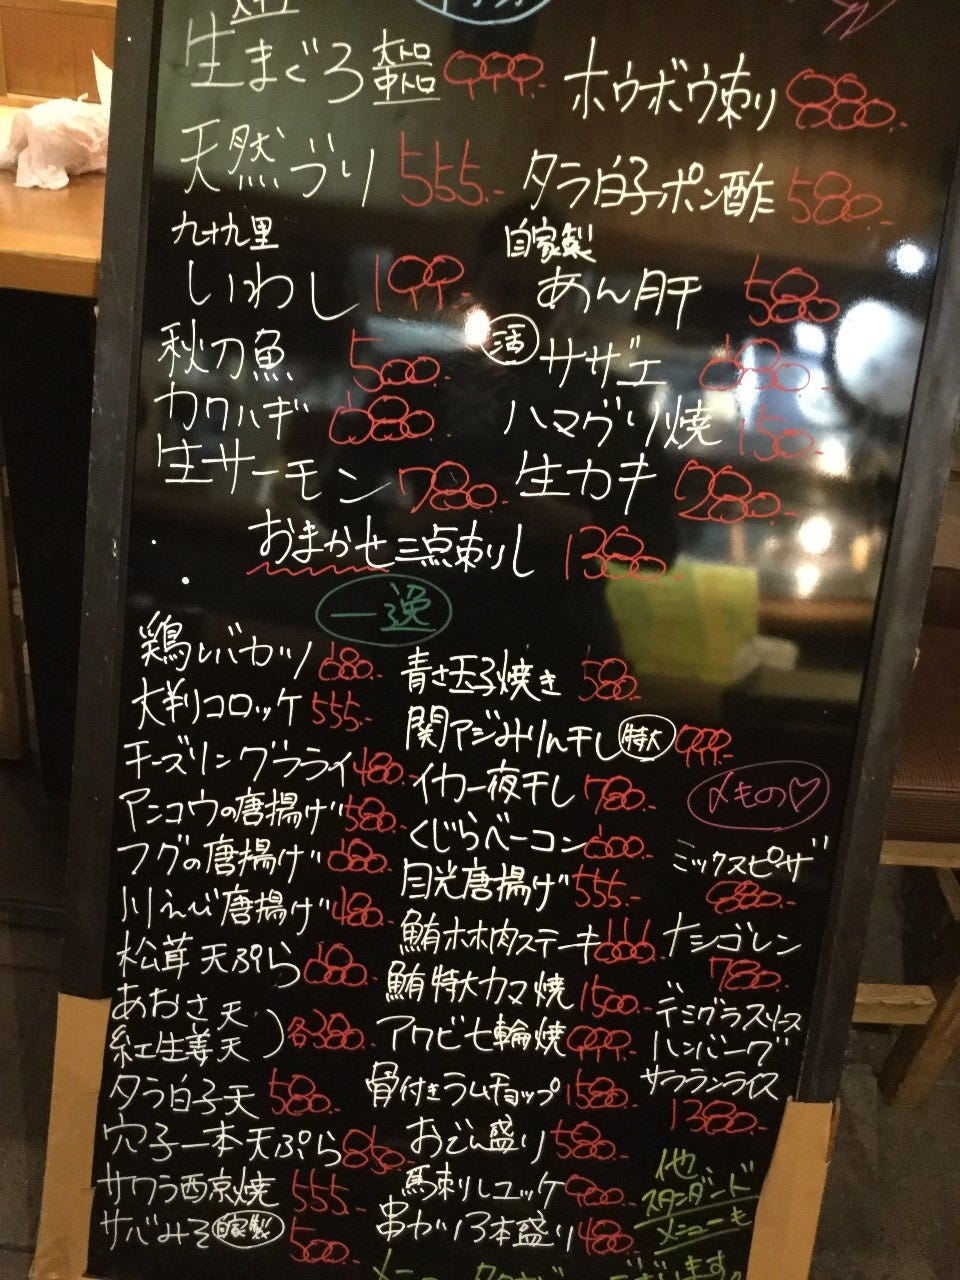 生まぐろ 大トロ 中トロ 999.-
天然ブリ 555.-
九十九里
いわし 199.-
秋刀魚 500.-
カワハギ 680.-
生サーモン 780.-
ホウボウ刺り 880.-
タラ白子ポン酢 580.-
自家製
あん肝 580
活 サザエ 680.-
ハマグリ焼 150.-
生カキ 280.-
おまかせ三点刺し 1380.-
一逸
鶏レバカツ 680.-
大判コロッケ 555.-
チーズリングフライ 480.-
アンコウの唐揚げ 580.-
フグの唐揚げ 680.-
川えび唐揚げ 480.-
松茸天ぷら 680.-
あおさ天
紅生姜天 ) 各380.-
タラ白子天 580.-
穴子一本天ぷら 850.-
サワラ西京焼 555.-
サバみそ 自家製 500.-
青さ玉子焼き 580.-
関アジみりん干し 特大 999.-
イカ一夜干し 780.-
くじらベーコン 600.-
目光唐揚げ 555.-
鮪ホホ肉ステーキ 666.-
鮪特大カマ焼 1500.-
アワビ七輪焼 999.-
骨付きラムチョップ 1580.-
おでん盛り 580.-
馬刺しユッケ 900.-
串カツ3本盛り 480.-
〆もの♡
ミックスピザ
880.-
ナシゴレン
780.-
デミグラスソース
ハンバーグ
サフランライス
1380.-
他
スタンダード
メニューも
ございます。